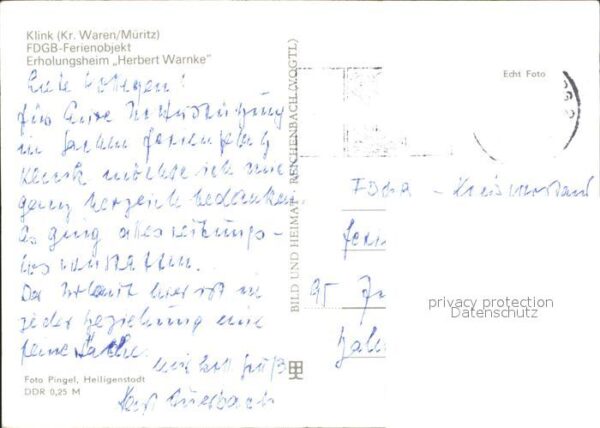 Klink (Kr. Waren/Müritz)
FDGB-Ferienobjekt
Erholungsheim „Herbert Warnke"
Liebe Kollegen!
für Eure Unterstützung
in Sachen Ferienplatz
Klink möchte ich mich
ganz herzlich bedanken.
Es ging alles reibungs-
los vonstatten.
Der Urlaub hier ist in
jeder Beziehung eine
feine Sache.
mit koll. Gruß
Auerbach
Foto Pingel, Heiligenstadt
DDR 0,25 M
BILD UND HEIMAT REICHENBACH (VOGTL)
Echt Foto
FDGB - Kreisvorstand
95
privacy protection
Datenschutz